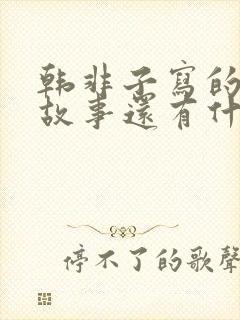 韩非子寫的
故事還有什
停不了的歌聲